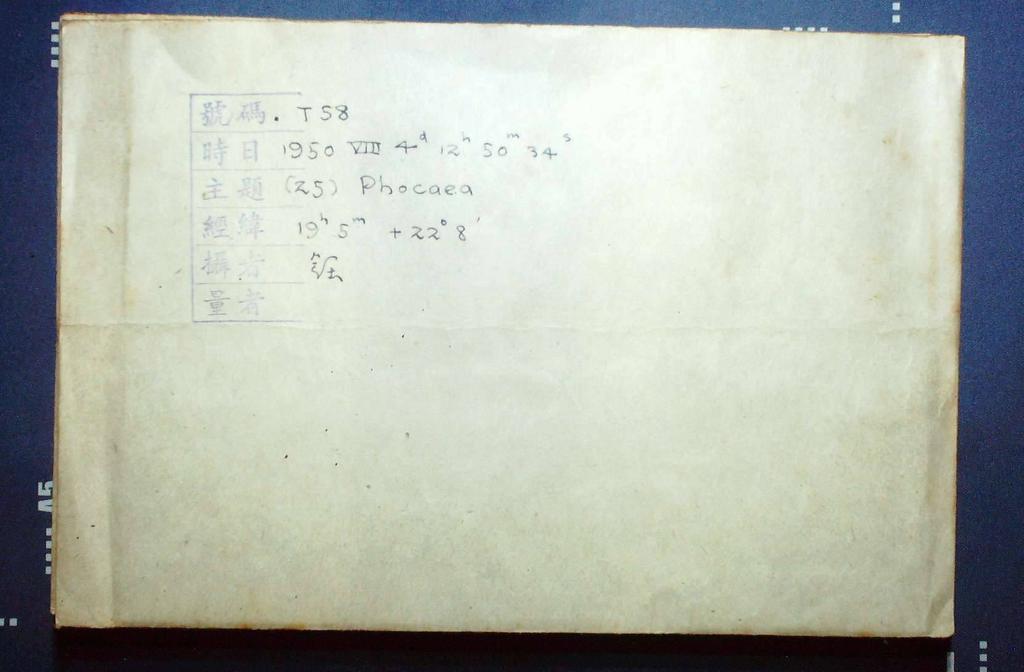 號碼. T58
時日 1950 VIII 4ᵈ 12ʰ 50ᵐ 34ˢ
主題 (25) Phocaea
經緯 19ʰ 5ᵐ +22° 8'
攝者
量者
A5